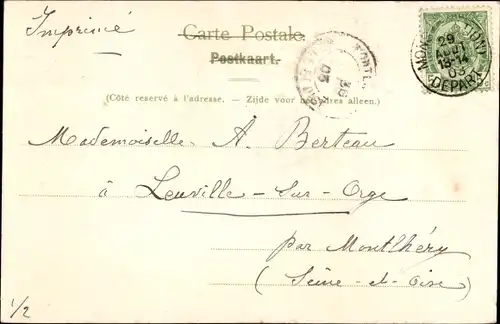 Imprimé
Carte Postale.
Postkaart.
29
AOUT
13-14
05
DEPART
(Côté reservé à l'adresse. - Zijde voor het adres alleen.)
Mademoiselle A. Berteau
à Leuville-sur-Orge
par Montlhéry
(Seine-et-Oise)
1/2